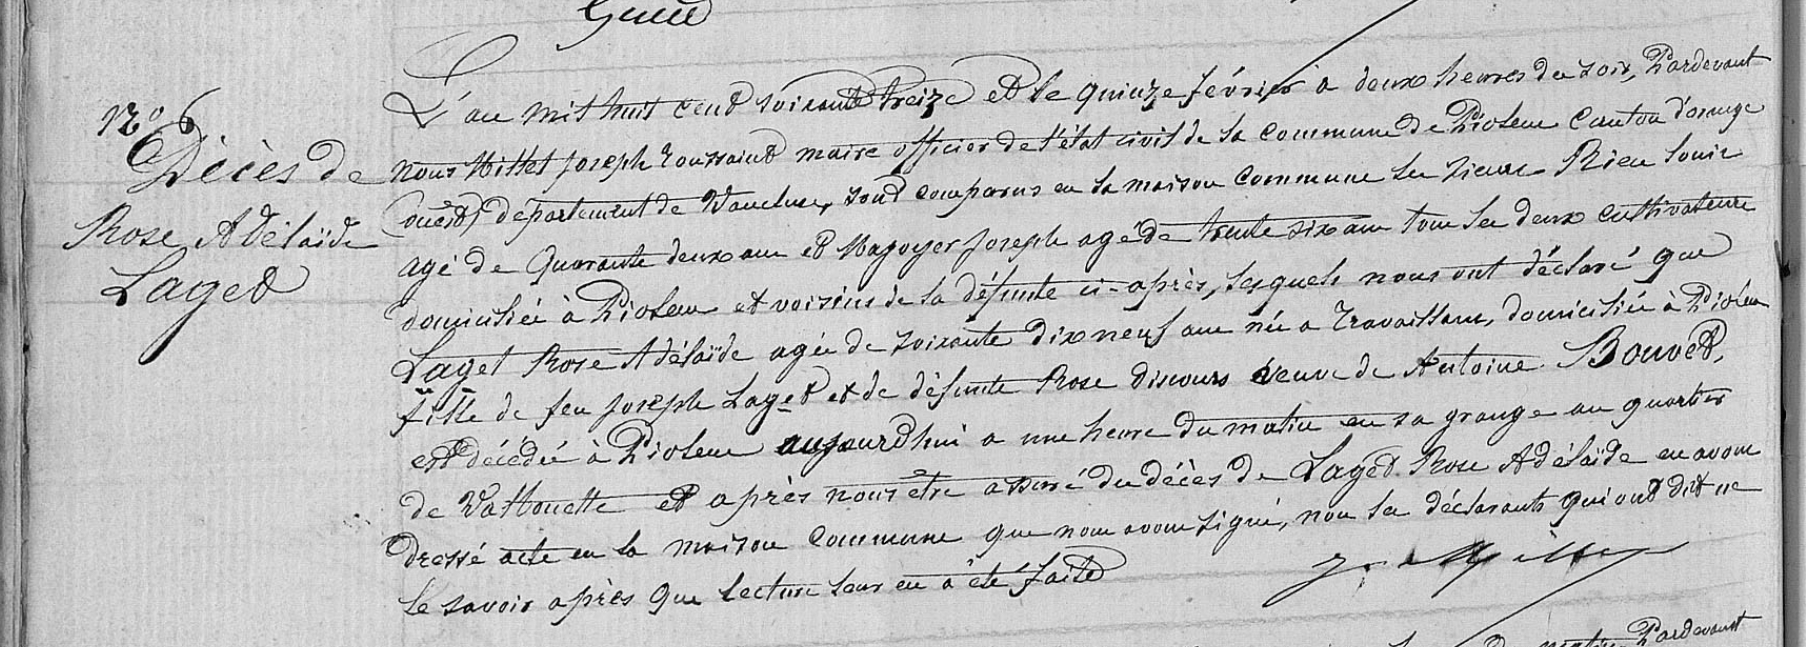 N° 6
Décès de
Rose Adélaïde
Laget
L'an mil huit cent soixante treize et le quinze février à deux heures du soir, Pardevant
nous Millet joseph Toussaint maire officier de l'état civil de la commune de Piolenc Canton d'orange
(ouest) département de Vaucluse, sont comparus en la maison Commune les sieurs Rieu Louis
agé de Quarante deux ans et Magoyer joseph agé de trente six ans tous les deux cultivateurs
domiciliés à Piolenc et voisins de la défunte ci-après, lesquels nous ont déclaré que
Laget Rose Adélaïde agée de soixante dix neuf ans née a Travaillans, domiciliée à Piolenc
fille de feu joseph Laget et de défunte Rose Discours veuve de Antoine Bouvet,
est décédée à Piolenc aujourdhui a une heure du matin en sa grange au quartier
de Valbouette et après nous être assuré du décès de Laget Rose Adélaïde en avons
dressé acte en la maison Commune que nous avons signé, non les déclarants qui ont dit ne
le savoir après que lecture leur en a été faite
J. Millet
Pardevant